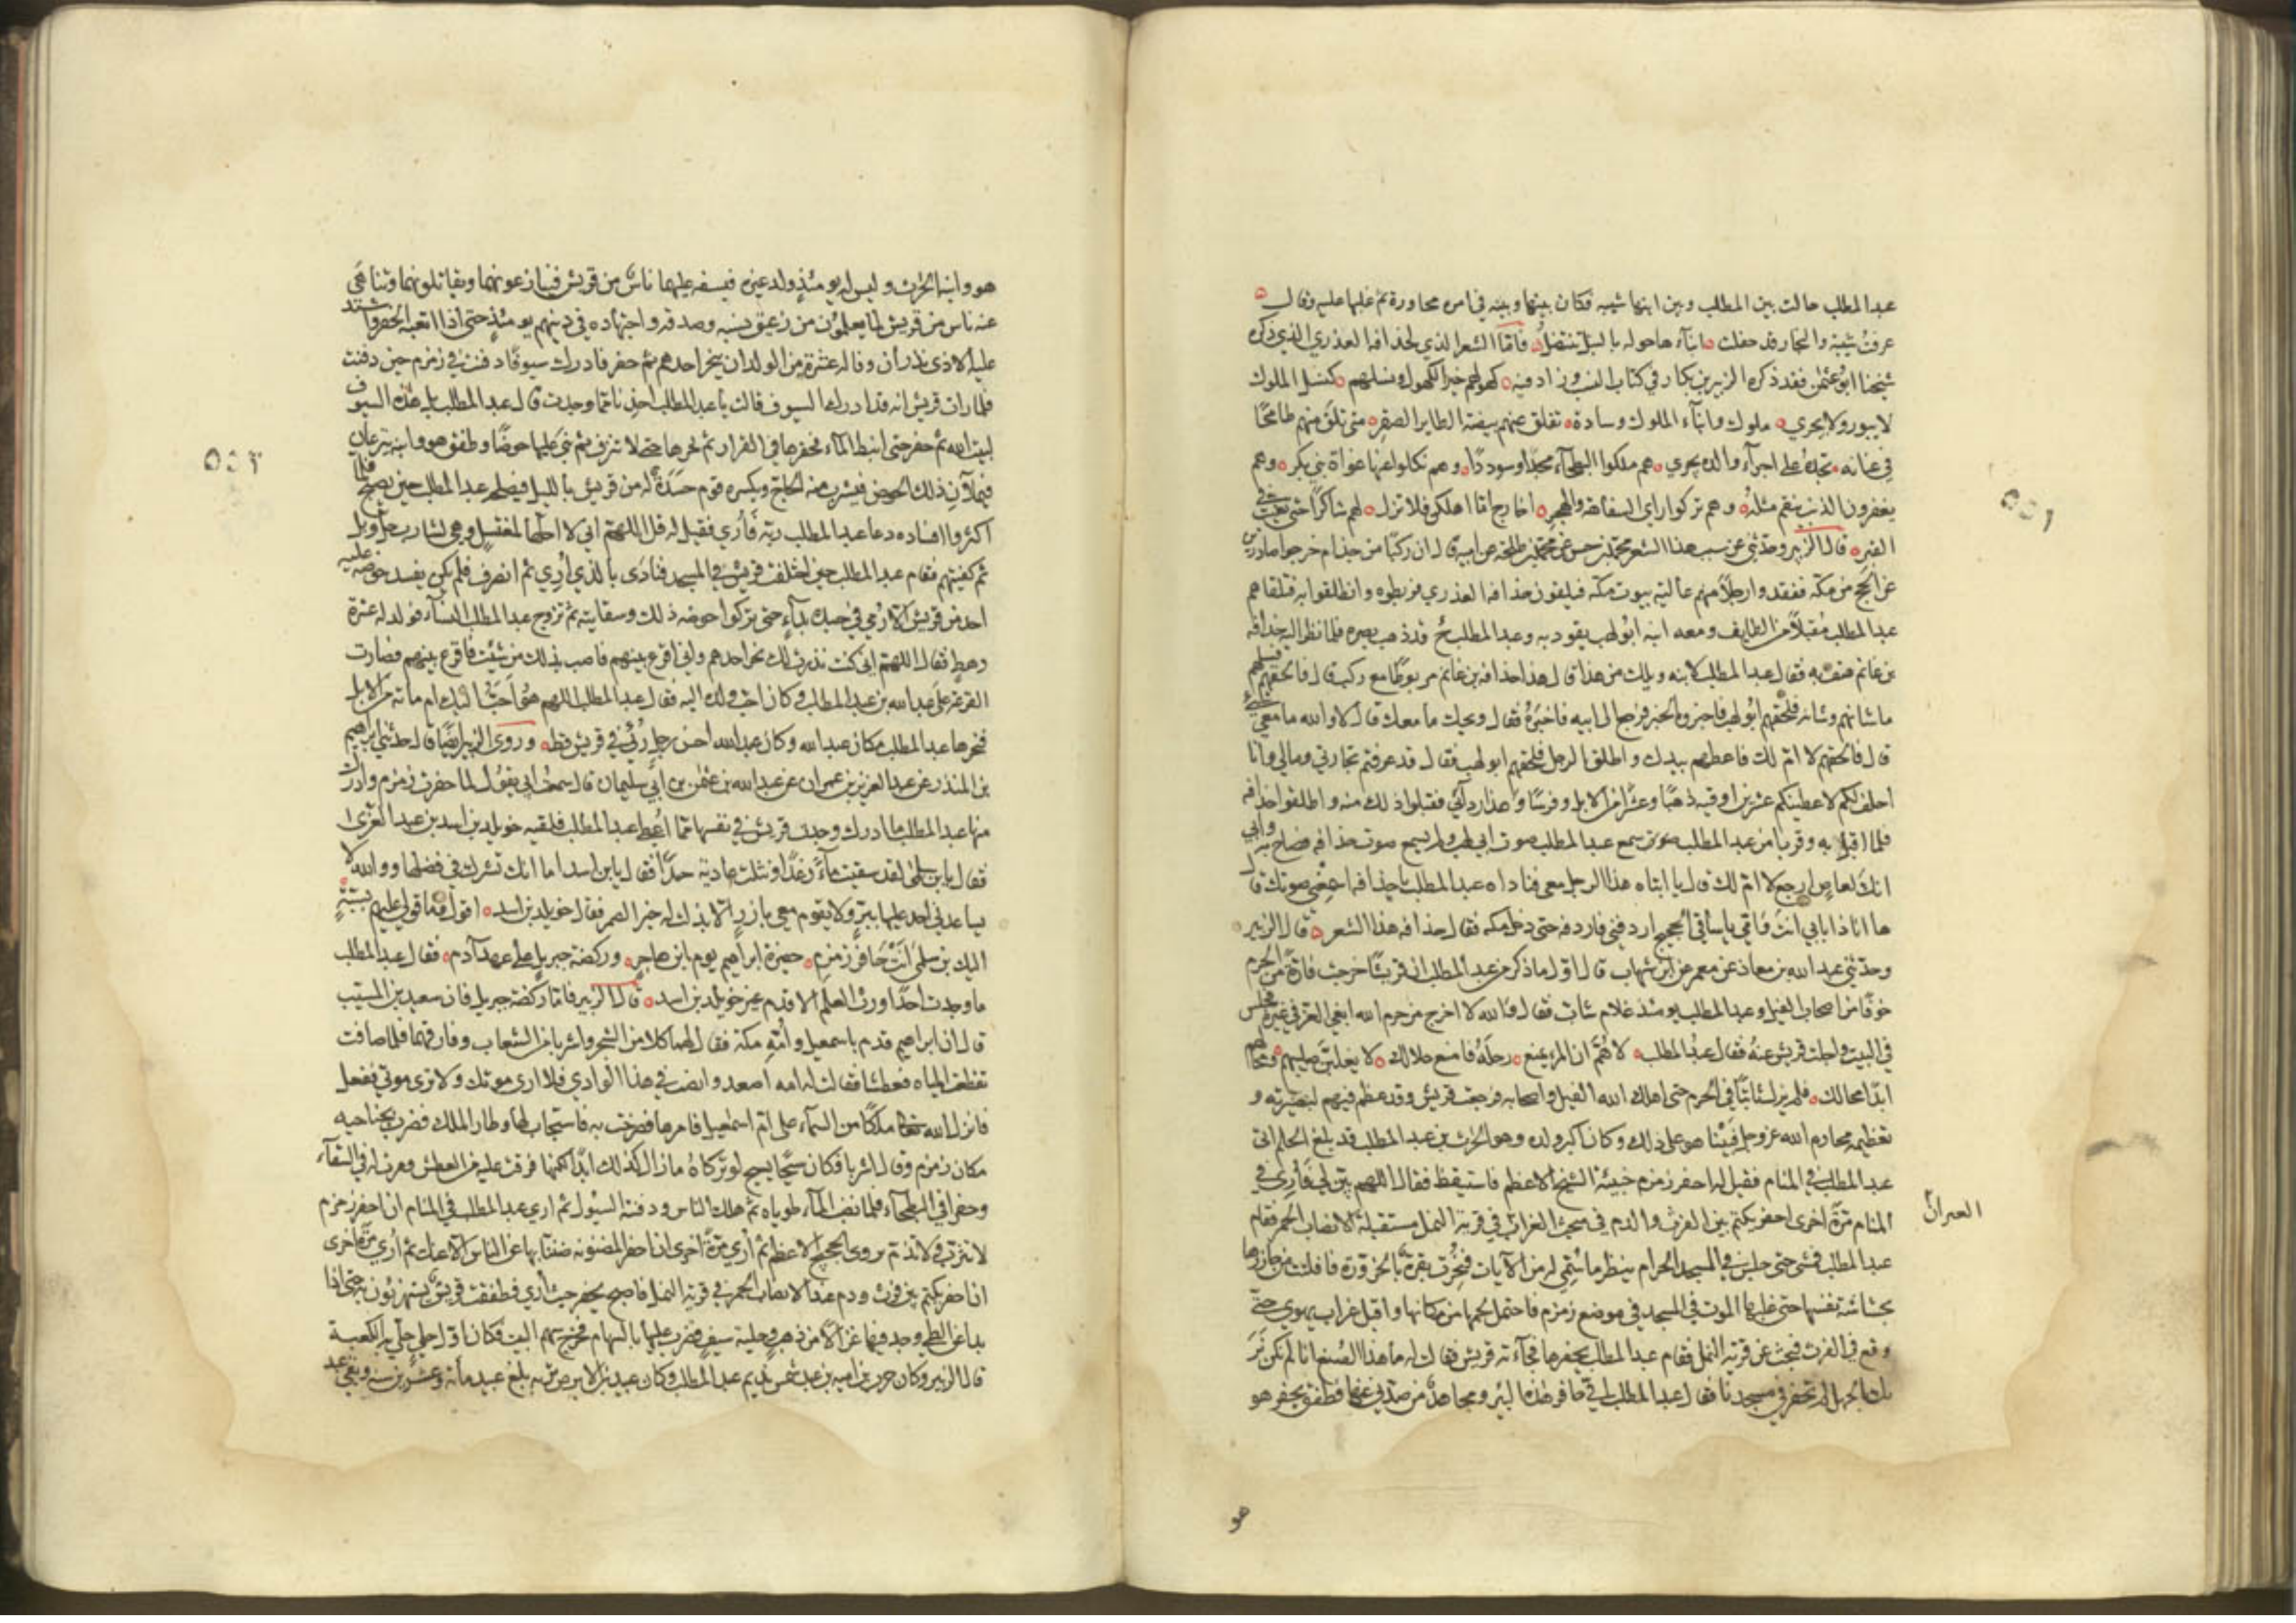 عبد المطلب حالت بين المطلب وبين ابنها شيبه فكان بينها وبينه في امره محاورة ثم غلبها عليه وقال
عرفت شيبة والنجار قد حفلت ابناءها حوله بالنبل تنتضل فاما الشعر الذي لحذافه العذري الذي ذكره
شيخنا ابو عثمن فقد ذكره الزبير بن بكار في كتاب النسب وزاد فيه كهولهم خير الكهول ونسلهم كنسل الملوك
لا يبور ولا يحري ملوك وابناء الملوك وسادة تفلق عنهم بيضة الطاير الصقر متى تلق منهم طامحًا
في عنانه تجده على اجراء والده يجري هم ملكوا البطحاء مجدًا وسوددًا وهم نكلوا عنها غواة بني بكر وهم
يغفرون الذنب ينقم مثله وهم تركوا راي السفاهة والهجر اخارج اما اهلكن فلا تزل لهم شاكرًا حتى تغيب في
القبر قال الزبير وحدثني عن سبب هذا الشعر محمد بن حسن عن محمد بن طلحة عن ابيه قال ان ركبًا من جذام خرجوا صادرين
عن الحج من مكه ففقدوا رجلًا منهم عالية بيوت مكة فيلقون حذافه العذري فربطوه وانطلقوا به فتلقاهم
عبد المطلب مقبلًا من الطايف ومعه ابنه ابو لهب يقود به وعبد المطلب ح قد ذهب بصره فلما نظر اليه حذافه
بن غانم هتف به فقال عبد المطلب لابنه ويلك من هذا قال هذا حذافه بن غانم مربوطًا مع ركب قال فالحقهم فسلهم
ما شانهم وشانه فلحقهم ابو لهب فاخبروه الخبر فرجع الى ابيه فاخبره فقال ويحك ما معك قال لا والله ما معي شيء
قال فالحقهم لا ام لك فاعطهم بيدك واطلق الرجل فلحقهم ابو لهب فقال قد عرفتم تجارتي ومالي وانا
احلف لكم لاعطينكم عشرين اوقية ذهبًا وعشرًا من الابل وفرسًا وهذا ردآئي فقبلوا ذلك منه واطلقوا حذافه
فلما اقبل به وقربا من عبد المطلب سمع عبد المطلب صوت ابي لهب ولم يسمع صوت حذافه فصاح به وابي
انك لعاص ارجع لا ام لك قال يا ابتاه هذا الرجل معي فناداه عبد المطلب يا حذافه اسمعني صوتك قال
ها انا ذا بابي انت وامي يا ساقي الحجيج اردفني فاردفه حتى دخل مكه فقال حذافه هذا الشعر قال الزبير
وحدثني عبد الله بن معاذ عن معمر عن ابن شهاب قال اول ما ذكر من عبد المطلب ان قريشًا خرجت فارة من الحرم
خوفًا من اصحاب الفيل وعبد المطلب يومئذ غلام شاب فقال والله لا اخرج من حرم الله ابغي العز في غيره فجلس
في البيت واجلت قريش عنه فقال عبد المطلب لاهم ان المرء يمنع رحله فامنع حلالك لا يغلبن صليبهم ومحالهم
ابدًا محالك فلم يزل ثابتًا في الحرم حتى اهلك الله الفيل واصحابه فرجعت قريش وقد عظم فيهم لبصيرته و
تعظيمه محارم الله عز وجل فبينا هو على ذلك وكان اكبر ولده وهو الحرث بن عبد المطلب قد بلغ الحلم اتى
عبد المطلب في المنام فقيل له احفر زمزم خبيئة الشيخ الاعظم فاستيقظ فقال اللهم بين لي فاري في
المنام مرة اخرى احفر بكتم بين الفرث والدم في مبحث الغراب في قرية النمل مستقبلة الانصاب الحمر فقام
الغراب
عبد المطلب فمشى حتى جلس في المسجد الحرام ينظر ما سمي له من الآيات فنحرت بقرة بالحزورة فافلتت من جازرها
بحشاشة نفسها حتى غلبها الموت في المسجد في موضع زمزم فاحتمل لحمها من مكانها واقبل غراب يهوي حتى
وقع في الفرث فبحث عن قرية النمل فقام عبد المطلب يحفر هنا فجآءته قريش فقالت له ما هذا الصنع انا لم نكن نر
بك بالجهل لم تحفر في مسجدنا فقال عبد المطلب اني حافر هذه البئر ومجاهد من صدني عنها فطفق يحفر هو
هو
هو وابنه الحرث وليس له يومئذ ولد غيره فيسفه عليهما ناس من قريش فينازعونهما ويقاتلونهما وتناهى
عنه ناس من قريش لما يعلمون من زعيق نسبه وصدقه واجتهاده في دينهم يومئذ حتى اذا اتعبه الحفر واشتد
عليه الاذى نذر ان وفا له عشرة من الولد ان ينحر احدهم ثم حفر فادرك سيوفًا دفنت في زمزم حين دفنت
فلما رات قريش انه قد ادرك السيوف قالت يا عبد المطلب احذنا مما وجدت قال عبد المطلب بل هذه السيوف
لبيت الله ثم حفر حتى انبط الماء فحفرها في القرار ثم بحرها حتى لا تنزف ثم بنى عليها حوضًا وطفق هو وابنه ينزعان
فيملآن ذلك الحوض فيشرب منه الحاج ويكسره قوم حسدة له من قريش بالليل فيصلحه عبد المطلب حين يصبح فلما
اكثروا افساده دعا عبد المطلب ربه فأري فقيل له قل اللهم اني لا احلها لمغتسل وهي لشارب حل وبل
ثم كفيتهم فقام عبد المطلب حين اختلفت قريش في المسجد فنادى بالذي أري ثم انصرف فلم يكن يفسد حوضه عليه
احد من قريش الا رمي في جسده بداء حتى تركوا حوضه ذلك وسقايته ثم تزوج عبد المطلب النساء فولد له عشرة
رهط فقال اللهم اني كنت نذرت لك نحر احدهم واني اقرع بينهم فاصب بذلك من شئت فاقرع بينهم فصارت
القرعة على عبد الله بن عبد المطلب وكان احب ولده اليه فقال عبد المطلب اللهم هو احب اليك ام مائة من الابل
فنحرها عبد المطلب مكان عبد الله وكان عبد الله احسن رجل رئي في قريش قط وروى الزبير ايضًا قال حدثني ابراهيم
بن المنذر عن عبد العزيز بن عمران عن عبد الله بن عثمن بن ابي سليمان قال سمعت ابي يقول لما حفرت زمزم وادرك
منها عبد المطلب ما ادرك وجدت قريش في نفسها مما اعطي عبد المطلب فلقيه خويلد بن اسد بن عبد العزى
فقال يا بن سلمى لقد سقيت ماء رغدًا ونثلت عادية حدًا فقال يا بن اسد اما انك تشرك في فضلها ووالله لا
يساعدني احد عليها ببر ولا يقوم معي بازر الا بذلت له خير الصهر فقال خويلد بن اسد اقول وما قولي عليهم بسبة
اليك بن سلمى انت حافر زمزم حفيرة ابراهيم يوم ابن هاجر وركضة جبريل على عهد آدم فقال عبد المطلب
ما وجدت احدًا ورث العلم الاقدم غير خويلد بن اسد قال الزبير فاما ركضة جبريل فان سعيد بن المسيب
قال ان ابراهيم قدم باسمعيل وامه مكة فقال لهما كلا من الشجر واشربا من الشعاب وفارقهما فلما ضاقت
تقطعت المياه فعطشا فقالت له امه اصعد وانصب في هذا الوادي فلا ارى موتك ولا ترى موتي ففعل
فانزل الله تعالى ملكًا من السمآء على ام اسمعيل فامرها فصرخت به فاستجاب لها وطار الملك فضرب بجناحيه
مكان زمزم وقال اشربا فكان سيحًا يسيح لو تركاه ما زال كذلك ابدًا لكنها فرقت عليه من العطش وقرت له في السقآء
وحفرا في البطحآء فلما نضب المآء طوياه ثم هلك الناس ودفنته السيول ثم اري عبد المطلب في المنام ان احفر زمزم
لا تنزف ولا تذم تروي الحجيج الاعظم ثم أري مرة اخرى ان احفر المضنونه ضننت بها عن الناس الا عنك ثم أري مرة اخرى
ان احفر بكتم بين فرث ودم عند الانصاب الحمر في قرية النمل فاصبح يحفر حيث أري فطفقت قريش يستهزئون به حتى اذا
بدا عن الطي وجد فيها غزالًا من ذهب وحلية سيف فضرب عليها بالسهام فخرج سهم البيت فكان اول حلي حلي به الكعبة
قال الزبير وكان حرب بن امية بن عبد شمس نديم عبد المطلب وكان عبيد بن الابرص تربه بلغ عبيد مأئة وعشرين سنه وبقي عبد